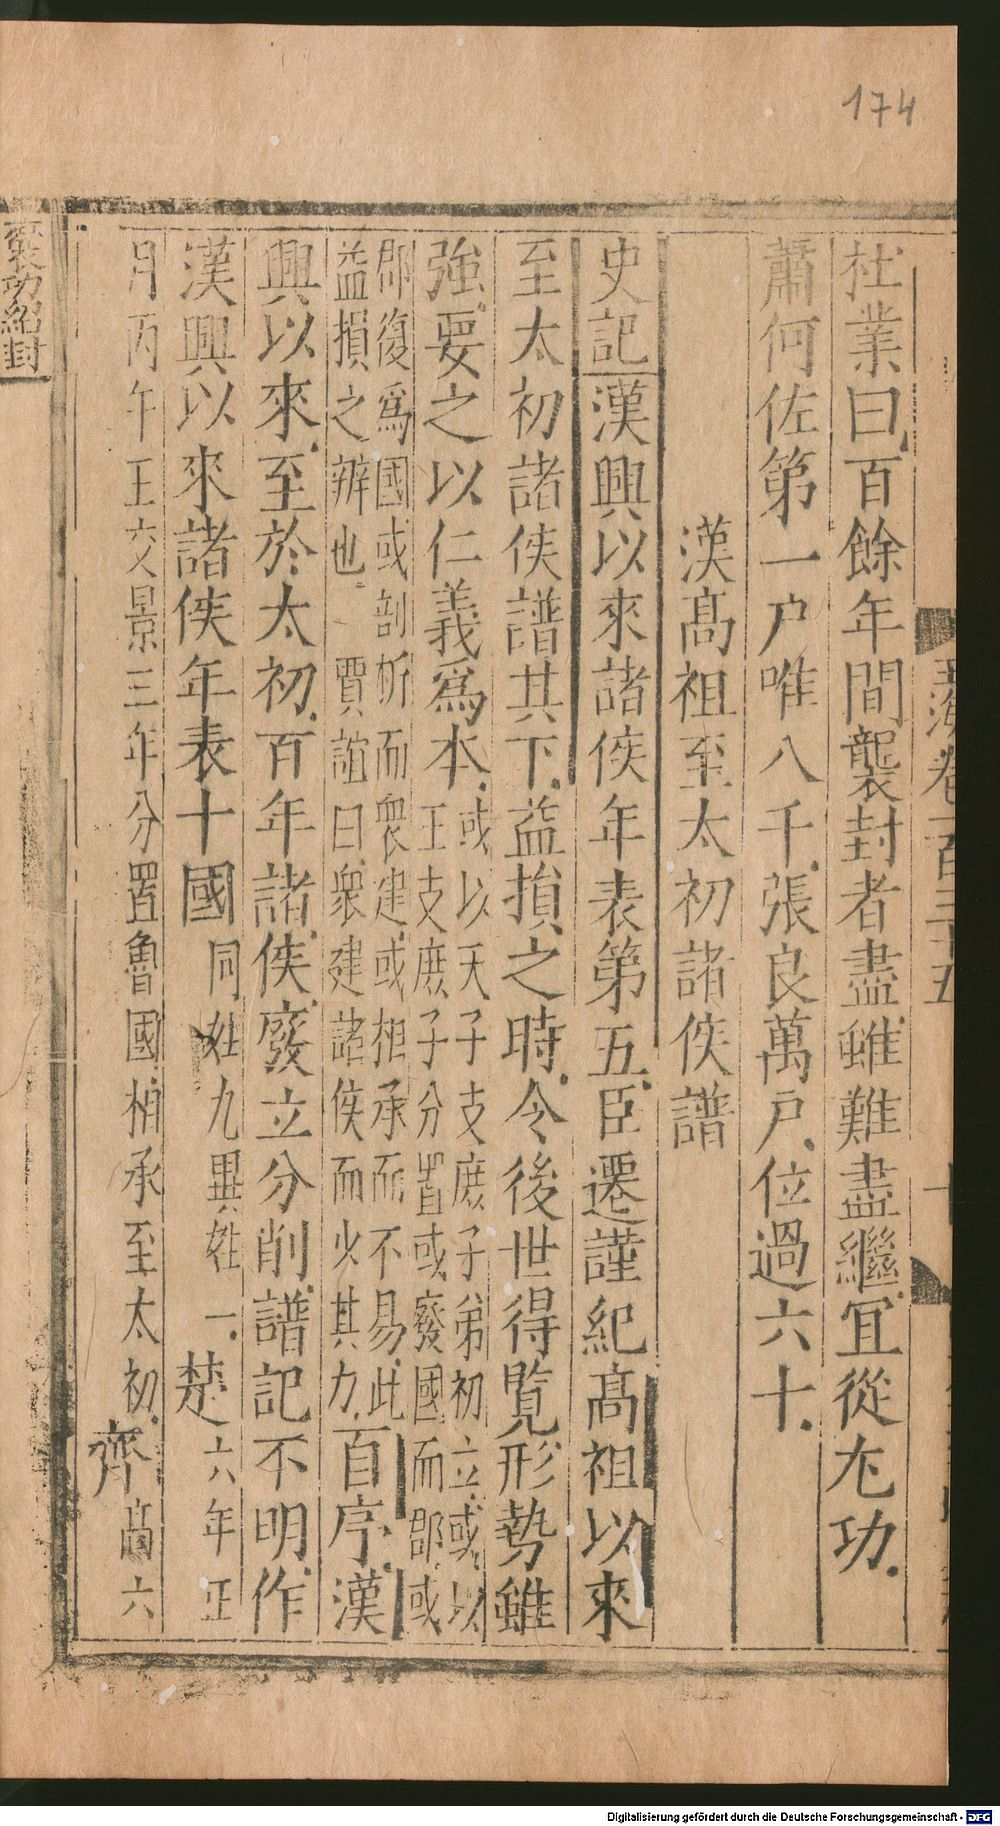 174
杜業曰百餘年間襲封者盡雖難盡繼宜從尤功
蕭何佐第一户唯八千張良萬户位過六十
漢髙祖至太初諸侯譜
史記漢興以來諸侯年表第五臣遷謹紀髙祖以來
至太初諸侯譜其下益損之時令後世得覽形勢雖
強要之以仁義爲本或以天子支庶子弟初立或以
王支庶子分置或廢國而郡或
郡復爲國或剖析而衆建或相承而不易此
益損之辨也 賈誼曰衆建諸侯而少其力自序漢
興以來至於太初百年諸侯廢立分削譜記不明作
漢興以來諸侯年表十國同姓九異姓一楚六年正
月丙午王交景三年分置魯國相承至太初齊高六
褒功紹封
玉海卷一百三十五
Digitalisierung gefördert durch die Deutsche Forschungsgemeinschaft - DFG